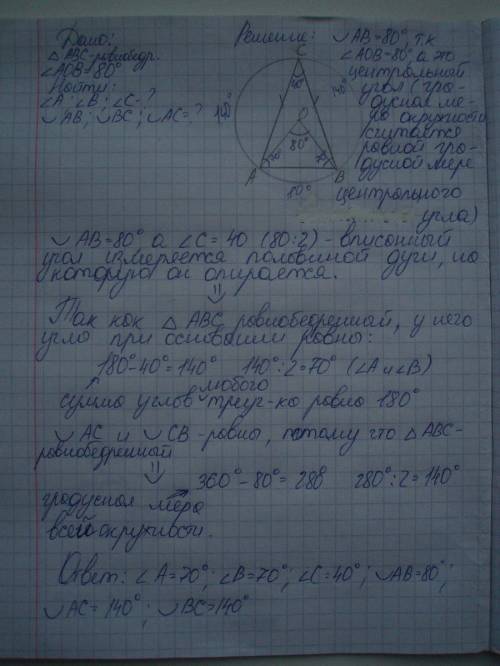 Дано:
△ABC-равнобедр.
∠AOB=80°
Найти:
∠A; ∠B; ∠C-?
◡AB; ◡BC; ◡AC=?
Решение: ◡AB=80°, т.к
∠AOB=80°, а это
центральный
угол (гра-
дусная ме-
ра окружности
считается
равной гра-
дусной мере
центрального
угла)
C
40°
140°
O
80°
A
B
80°
◡AB=80°, а ∠C=40 (80:2) - вписанный
угол измеряется половиной дуги, на
которую он опирается.
⇓
Так как △ABC равнобедренный, у него
углы при основании равны:
180°-40°=140° 140°:2=70° (∠A и ∠B)
любого
сумма углов треуг-ка равна 180°
◡AC и ◡CB-равны, потому что △ABC-
равнобедренный
⇓
360°-80°=280° 280°:2=140°
градусная мера
всей окружности.
Ответ: ∠A=70°; ∠B=70°; ∠C=40°; ◡AB=80°;
◡AC=140°; ◡BC=140°